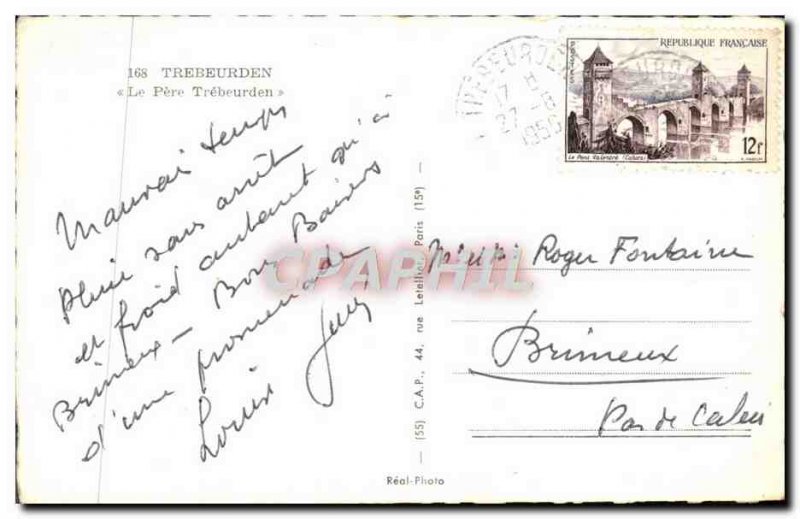 168 TREBEURDEN
« Le Père Trébeurden »
Mauvais temps
Pluie sans arrêt
et froid autant qu'à
Brimeux - Bons Baisers
d'une promenade
Louis
REPUBLIQUE FRANÇAISE
POSTES
12f
Le Pont Valentré (Cahors)
TREBEURDEN
17 H
27-8
1956
CPAPHIL
Roger Fontaine
Brimeux
Pas de Calais
(55) C.A.P., 44, rue Letellier, Paris (15e)
Réal-Photo